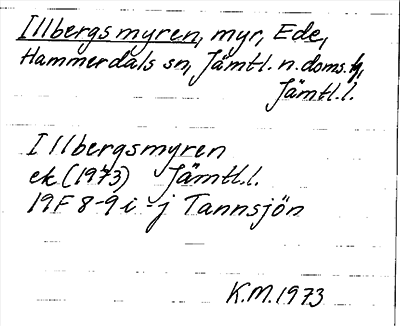 Illbergsmyren, myr, Ede,
Hammerdals sn, Jämtl. n. doms.h,
Jämtl.l.
Illbergsmyren
ek (1973) Jämtl.l.
19F 8-9 i-j Tannsjön
K.M. 1973